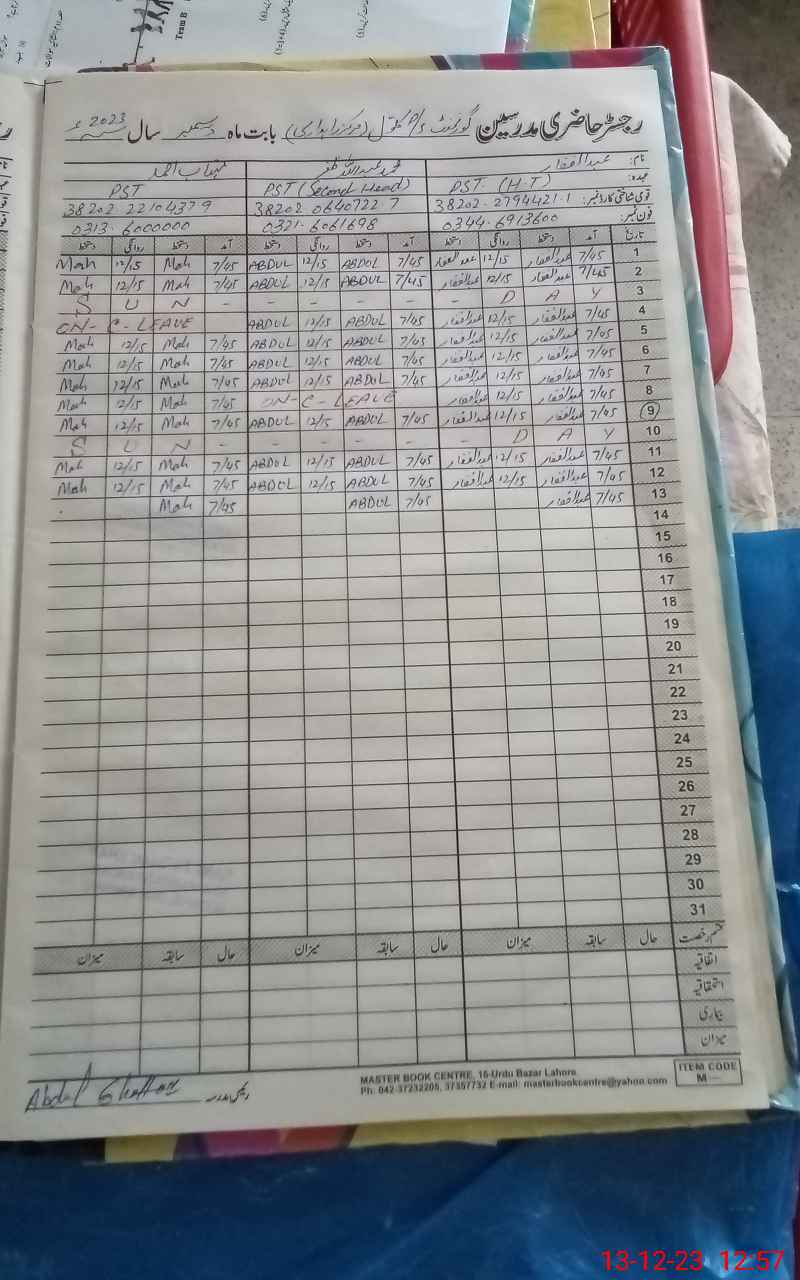 Team B
رجسٹر حاضری مدرسین گورنمنٹ P/S (مرکز) بابت ماہ دسمبر سال 2023ء
نام: عبدالغفار محمد عبداللہ احمد
عہدہ: PST (H.T) PST (Second Head) PST
قومی شناختی کارڈ نمبر: 38202-2794421-1 38202 0640722-7 38202 2210437-9
فون نمبر: 0344-6913600 0321-6061698 0313-6000000
تاریخ آمد دستخط روانگی دستخط آمد دستخط روانگی دستخط آمد دستخط روانگی دستخط
1 7/45 عبدالغفار 12/15 عبدالغفار 7/45 ABDUL 12/15 ABDUL 7/45 Mah 12/15 Mah
2 7/45 عبدالغفار 12/15 عبدالغفار 7/45 ABDUL 12/15 ABDUL 7/45 Mah 12/15 Mah
3 S U N - - - - - - D A Y
4 7/45 عبدالغفار 12/15 عبدالغفار 7/45 ABDUL 12/15 ABDUL ON-C-LEAVE
5 7/45 عبدالغفار 12/15 عبدالغفار 7/45 ABDUL 12/15 ABDUL 7/45 Mah 12/15 Mah
6 7/45 عبدالغفار 12/15 عبدالغفار 7/45 ABDUL 12/15 ABDUL 7/45 Mah 12/15 Mah
7 7/45 عبدالغفار 12/15 عبدالغفار 7/45 ABDUL 12/15 ABDUL 7/45 Mah 12/15 Mah
8 7/45 عبدالغفار 12/15 عبدالغفار ON-C-LEAVE 7/45 Mah 12/15 Mah
9 7/45 عبدالغفار 12/15 عبدالغفار 7/45 ABDUL 12/15 ABDUL 7/45 Mah 12/15 Mah
10 S U N - - - - - - D A Y
11 7/45 عبدالغفار 12/15 عبدالغفار 7/45 ABDUL 12/15 ABDUL 7/45 Mah 12/15 Mah
12 7/45 عبدالغفار 12/15 عبدالغفار 7/45 ABDUL 12/15 ABDUL 7/45 Mah 12/15 Mah
13 7/45 عبدالغفار 7/45 ABDUL 7/45 Mah
14
15
16
17
18
19
20
21
22
23
24
25
26
27
28
29
30
31
قسم رخصت حال سابقہ میزان حال سابقہ میزان حال سابقہ میزان
اتفاقیہ
استحقاقیہ
بیماری
میزان
Abdul Ghaffar رئیس مدرسہ
MASTER BOOK CENTRE, 16-Urdu Bazar Lahore.
Ph: 042-37232205, 37357732 E-mail: masterbookcentre@yahoo.com
ITEM CODE
M—
13-12-23 12:57